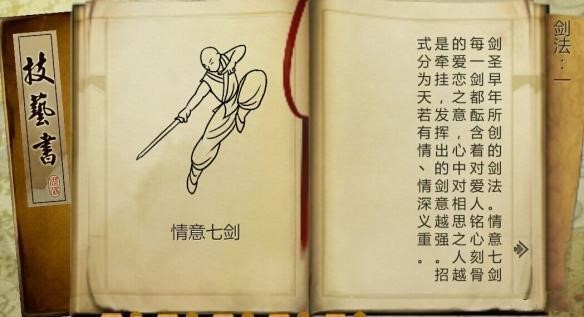 技藝書
情意七剑
剑法：一
剑圣早年所创的剑法。情意七剑
每一剑都酝含着对爱人铭心刻骨
的爱恋之意，心中对相思之人越
是牵挂，发挥出的剑意越强。招
式分为天若有情、情深义重。